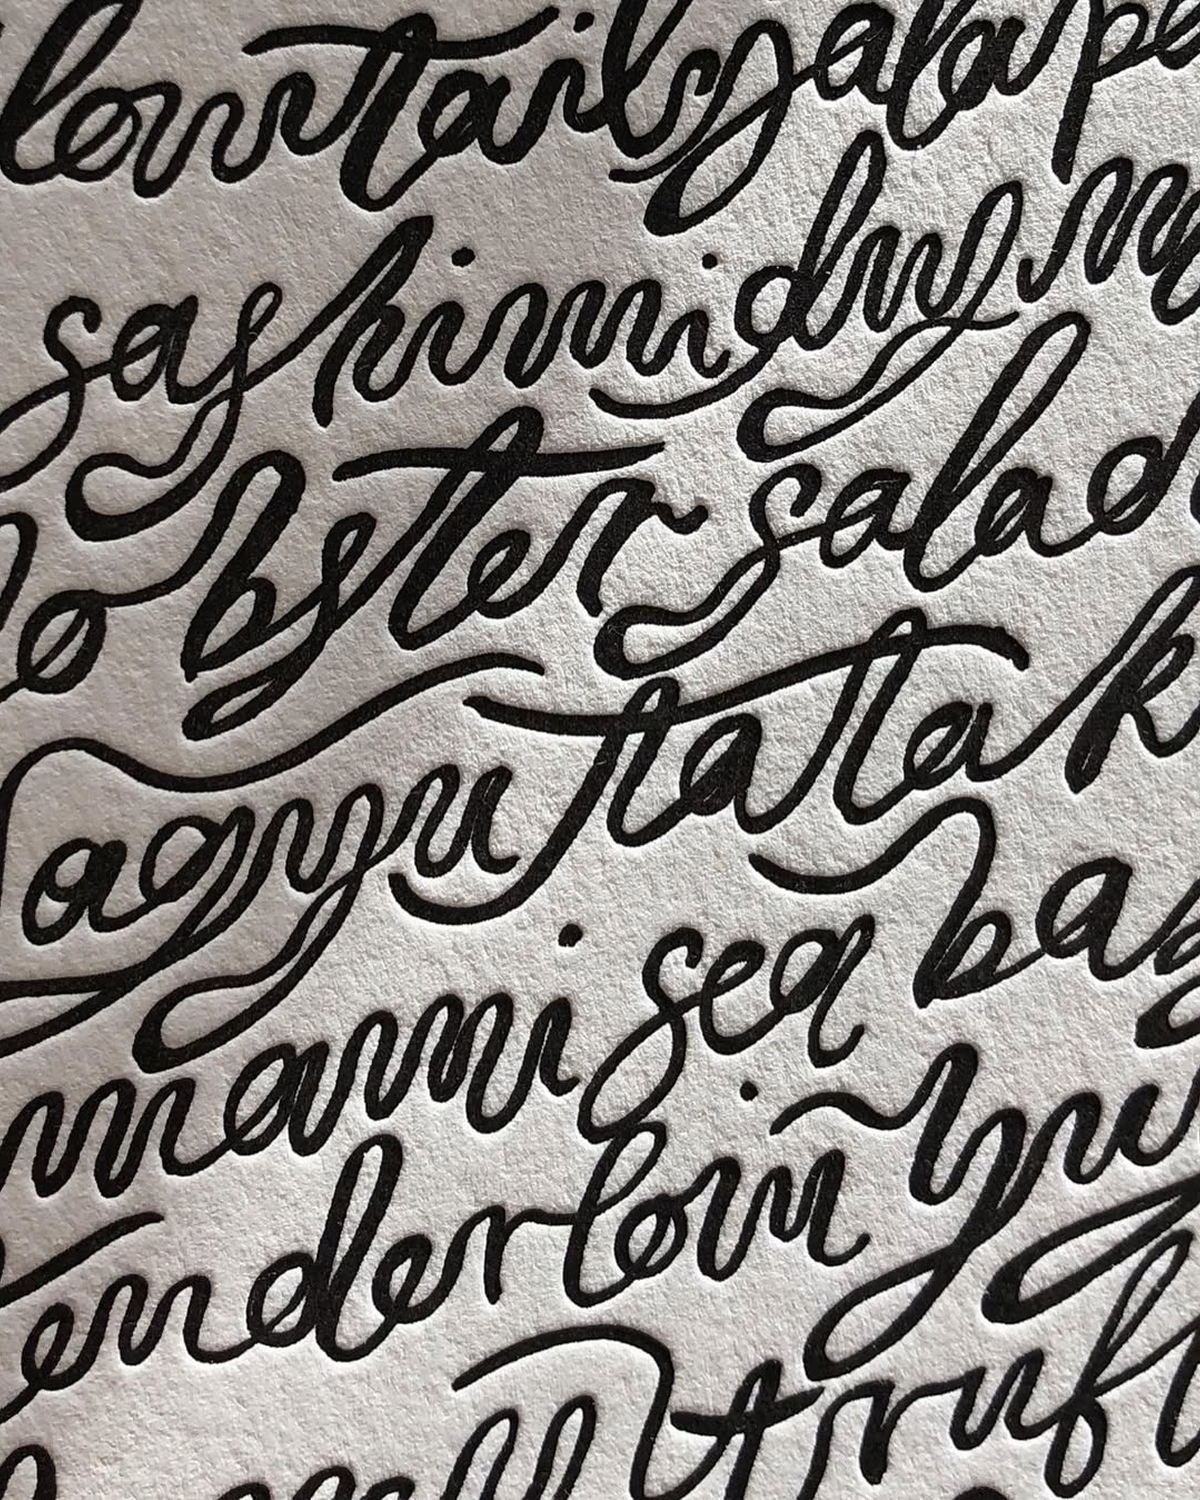 lowtail jalape
sashimi dry m
lobster salad
agyu tatak
mami sea bas
enderloin yu
truf